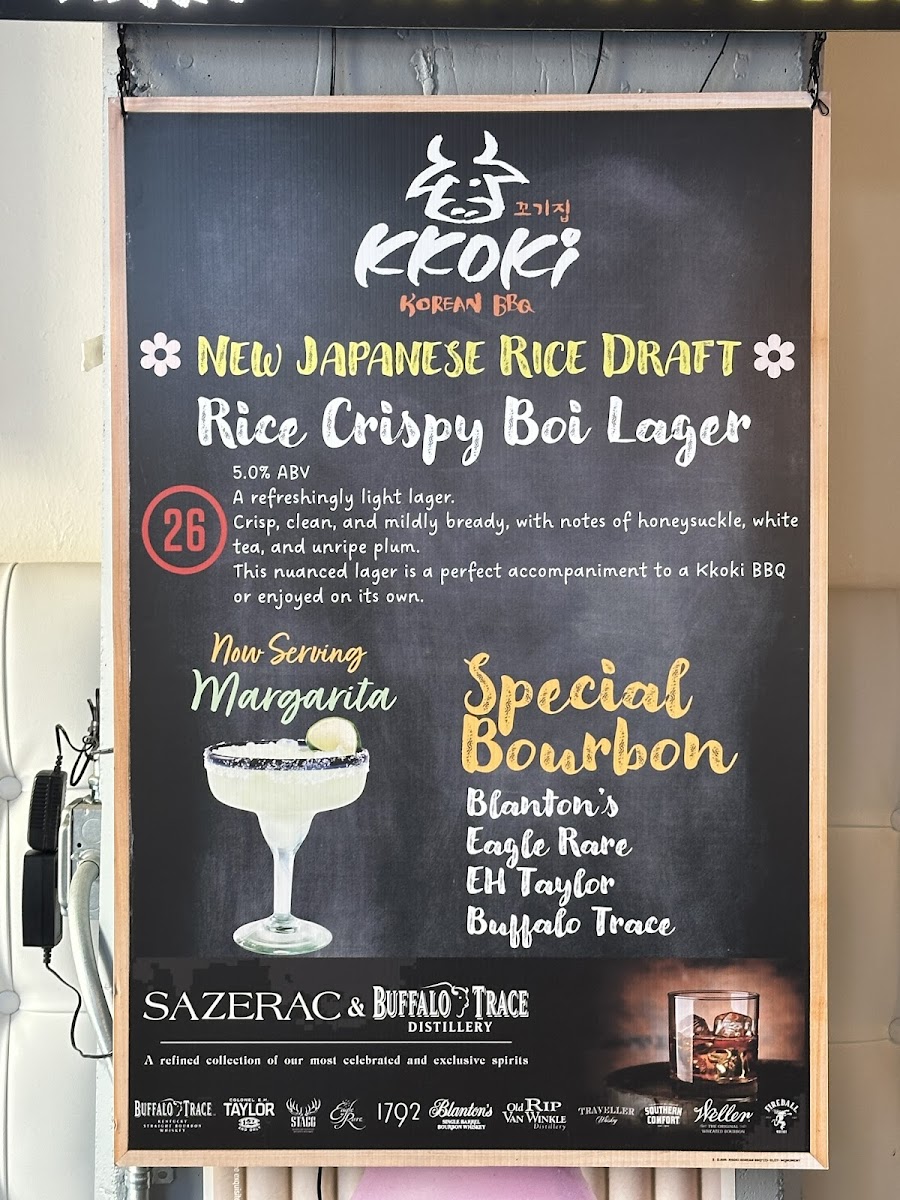 꼬기집
KKOKi
KOREAN BBQ
NEW JAPANESE RICE DRAFT
Rice Crispy Boi Lager
5.0% ABV
A refreshingly light lager.
26
Crisp, clean, and mildly bready, with notes of honeysuckle, white
tea, and unripe plum.
This nuanced lager is a perfect accompaniment to a Kkoki BBQ
or enjoyed on its own.
Now Serving
Margarita
Special
Bourbon
Blanton's
Eagle Rare
EH Taylor
Buffalo Trace
SAZERAC & BUFFALO TRACE
DISTILLERY
A refined collection of our most celebrated and exclusive spirits
BUFFALO TRACE
KENTUCKY
STRAIGHT BOURBON
WHISKEY
COLONEL E.H.
TAYLOR
STAGG
Eagle Rare
1792
Blanton's
SINGLE BARREL
BOURBON WHISKEY
Old RIP
VAN WINKLE
Distillery
TRAVELLER
Whiskey
SOUTHERN
COMFORT
Weller
THE ORIGINAL
WHEATED BOURBON
FIREBALL